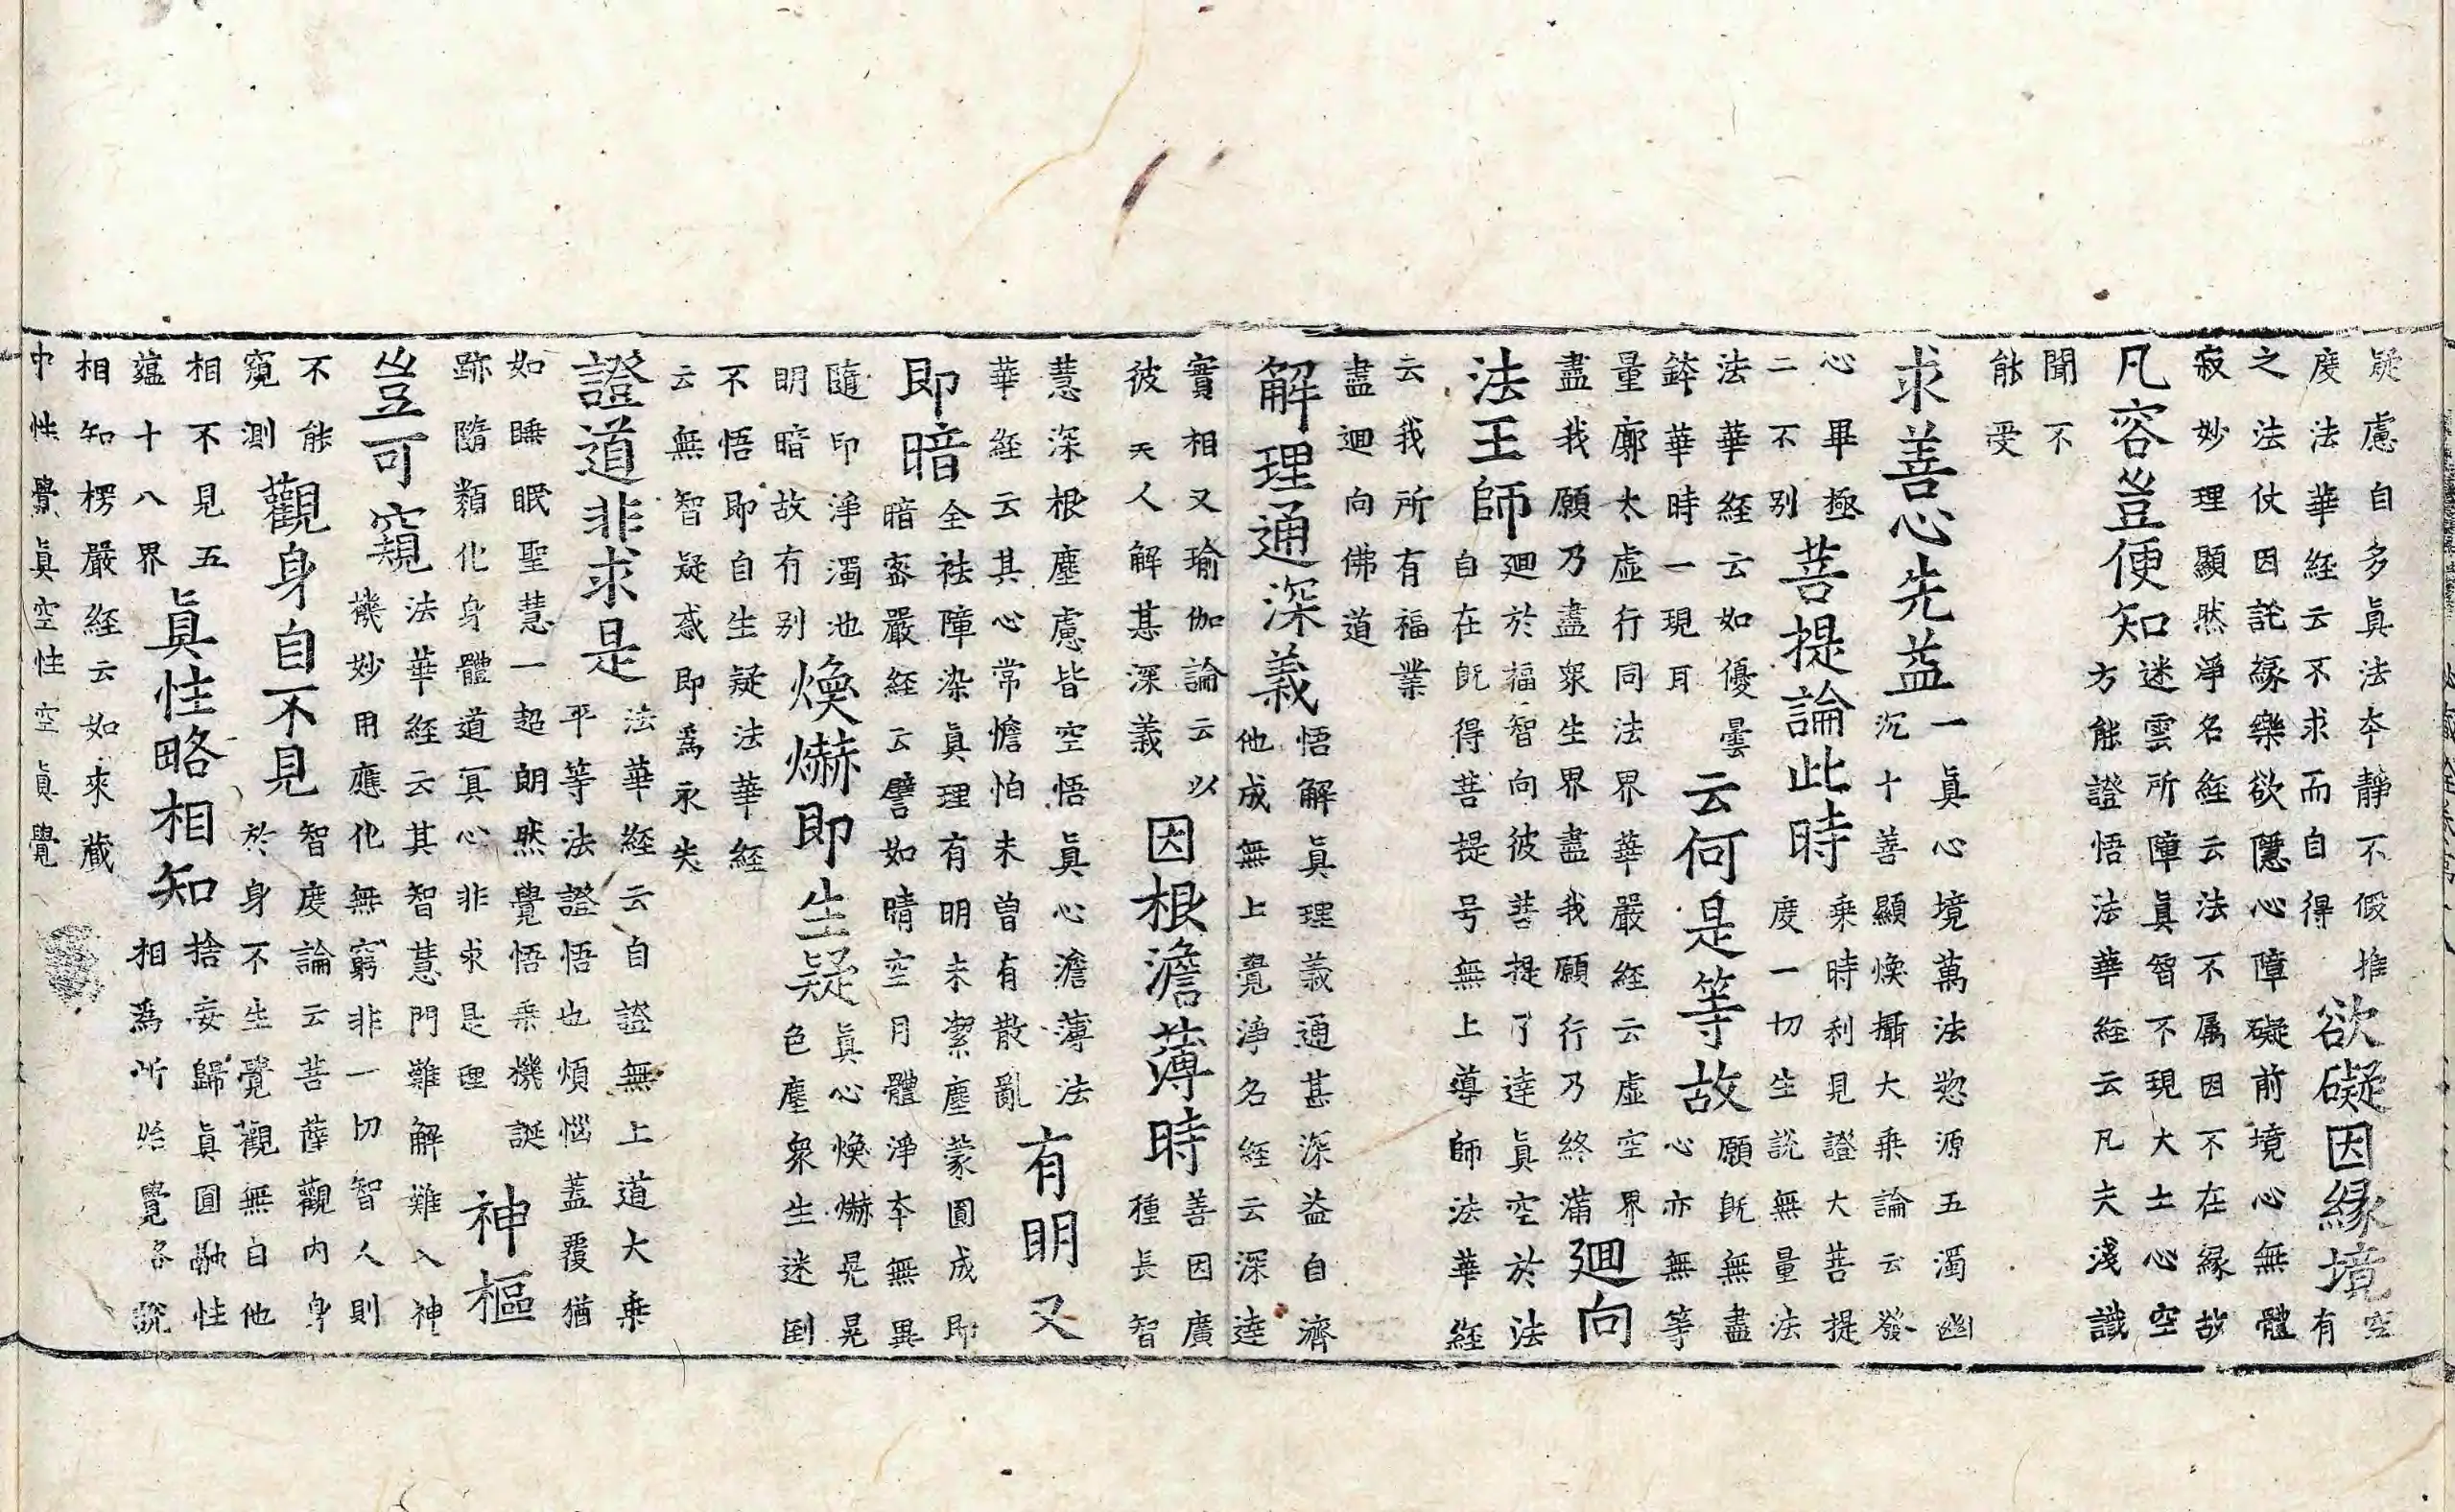 疑慮自多眞法夲靜不假推
度法華経云不求而自得
欲礙因緣境
空
有
之法仗因託緣樂欲隱心障礙前境心無體
寂妙理顯然淨名経云法不属因不在緣故
凡容豈便知
迷雲所障眞智不現大士心空
方能證悟法華経云凡夫淺識
聞不
能受
求善心先益
一眞心境萬法愗源五濁幽
沉十善顯煥攝大乗論云發
心畢極
二不别
菩提論此時
乗時利見證大菩提
度一切生説無量法
法華経云如優曇
鉢華時一現耳
云何是等故
願既無盡
心亦無等
量廓太虚行同法界華嚴経云虚空界
盡我願乃盡衆生界盡我願行乃終滿
廻向
法王師
廻於福智向彼菩提了達眞空於法
自在既得菩提号無上導師法華経
云我所有福業
盡廻向佛道
解理通深義
悟解眞理義通甚深益自濟
他成無上覺淨名経云深達
實相又瑜伽論云以
彼天人解甚深義
因根澹薄時
善因廣
種長智
慧深根塵慮皆空悟眞心澹薄法
華経云其心常憺怕未曽有散亂
有明又
即暗
全袪障染眞理有明未潔塵蒙圓成即
暗宻嚴経云譬如晴空月體淨夲無異
隨印淨濁池
明暗故有别
煥爀即生疑
眞心煥爀晃晃
色塵衆生迷倒
不悟即自生疑法華経
云無智疑惑即爲永失
證道非求是
法華経云自證無上道大乗
平等法證悟也煩惱蓋覆猶
如睡眠聖慧一超朗然覺悟乗機誕
跡隨類化身體道冥心非求是理
神樞
豈可窺
法華経云其智慧門難解難入神
機妙用應化無窮非一切智人則
不能
窺測
觀身自不見
智度論云菩薩觀内身
於身不生覺觀無自他
相不見五
蘊十八界
眞性略相知
捨妄歸眞圓融性
相爲所始覺各説
相知楞嚴経云如來藏
中性覺眞空性空眞覺